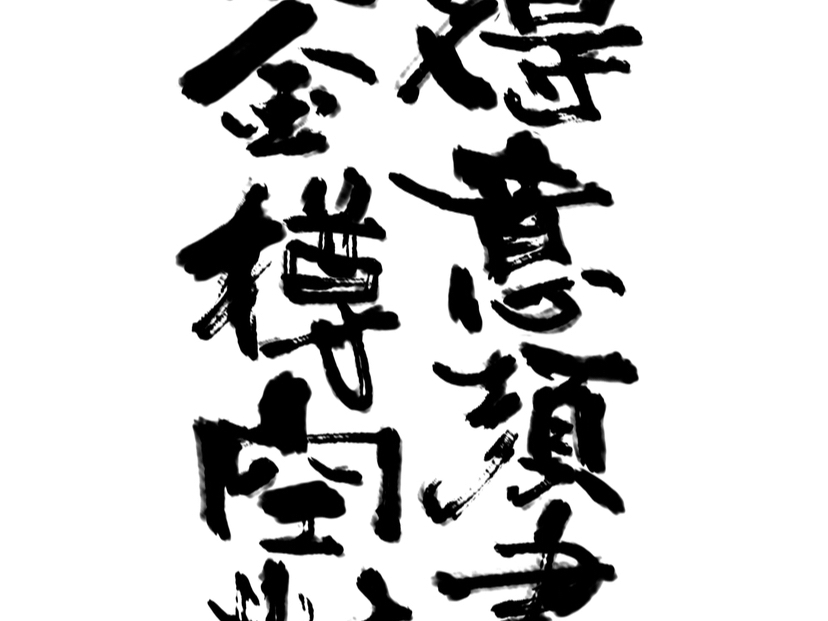 得意須
金樽空